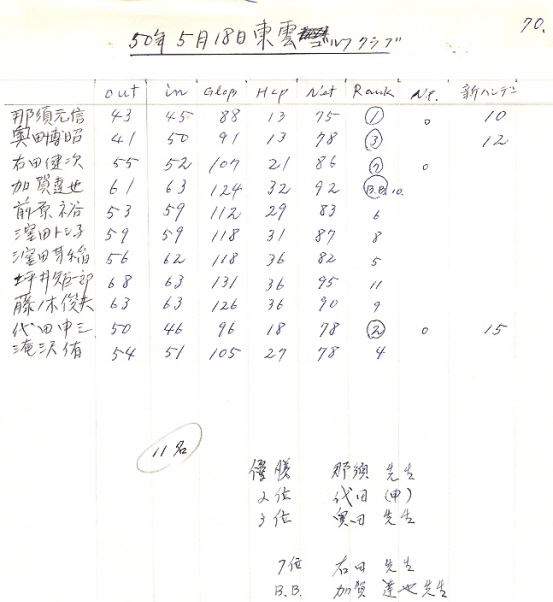 70.
50年5月18日東雲ゴルフクラブ
out in Glop Hcp Net Rank Np. 新ハンデ
那須元信 43 45 88 13 75 ① o 10
奥田博昭 41 50 91 13 78 ③ 12
右田健次 55 52 107 21 86 ⑦ o
加賀達也 61 63 124 32 92 B.B. 10.
前原裕 53 59 112 29 83 6
窪田トシ子 59 59 118 31 87 8
窪田 56 62 118 36 82 5
坪井矩一郎 68 63 131 36 95 11
藤ノ木俊夫 63 63 126 36 90 9
代田申三 50 46 96 18 78 ② o 15
滝沢侑 54 51 105 27 78 4
11名
優勝 那須 先生
2位 代田 (申)
3位 奥田 先生
7位 右田 先生
B.B. 加賀 達也先生